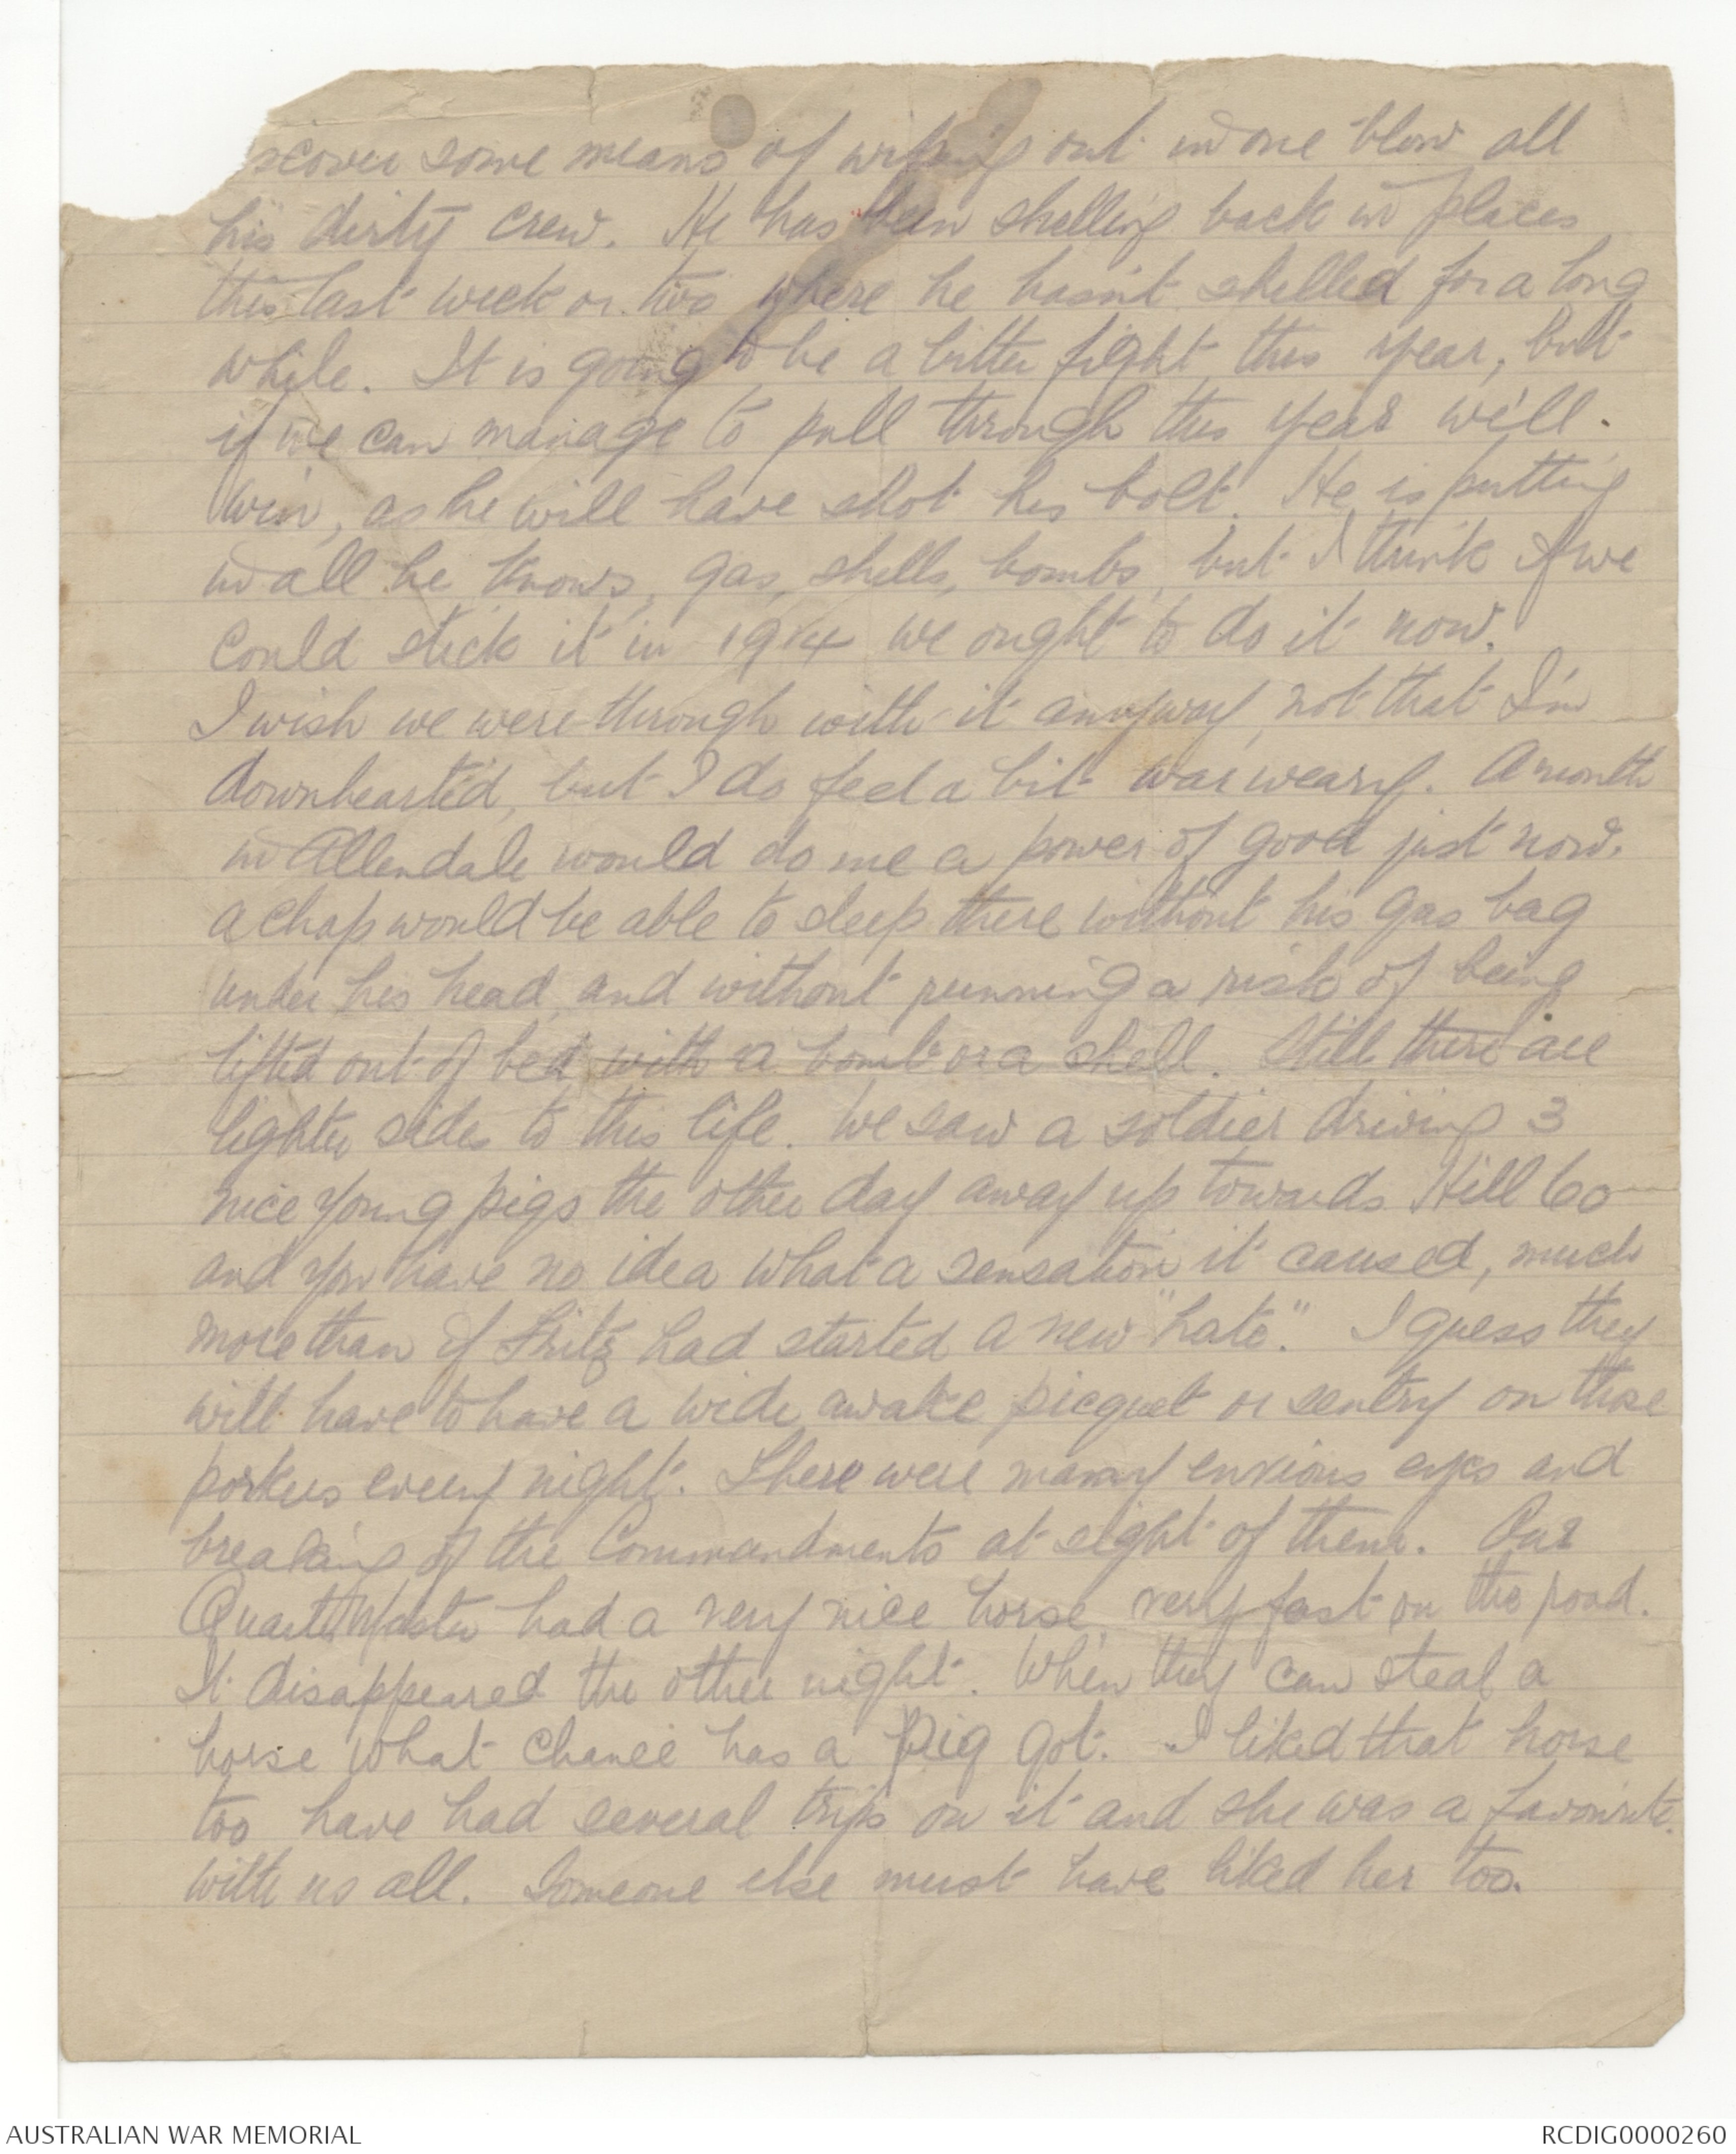 scover some means of wiping out in one blow all
his dirty crew. He has been shelling back in places
this last week or two where he hasn't shelled for a long
while. It is going to be a bitter fight this year, but
if we can manage to pull through this year we'll.
win, as he will have shot his bolt. He is putting
in all he knows, gas, shells, bombs, but I think if we
could stick it in 1914 we ought to do it now.
I wish we were through with it anyway, not that I'm
downhearted, but I do feel a bit war weary. A month
in Allendale would do me a power of good just now.
A chap would be able to sleep there without his gas bag
under his head, and without running a risk of being
lifted out of bed with a bomb or a shell. Still there are
lighter sides to this life. We saw a soldier driving 3
nice young pigs the other day away up towards Hill 60
and you have no idea what a sensation it caused, much
more than if Fritz had started a new "hate." I guess they
will have to have a wide awake picquet or sentry on those
porkers every night. There were many envious eyes and
breaking of the Commandments at sight of them. Our
QuarterMaster had a very nice horse, very fast on the road.
It disappeared the other night. When they can steal a
horse what chance has a pig got. I liked that horse
too have had several trips on it and she was a favourite
with us all. Someone else must have liked her too.
AUSTRALIAN WAR MEMORIAL
RCDIG0000260